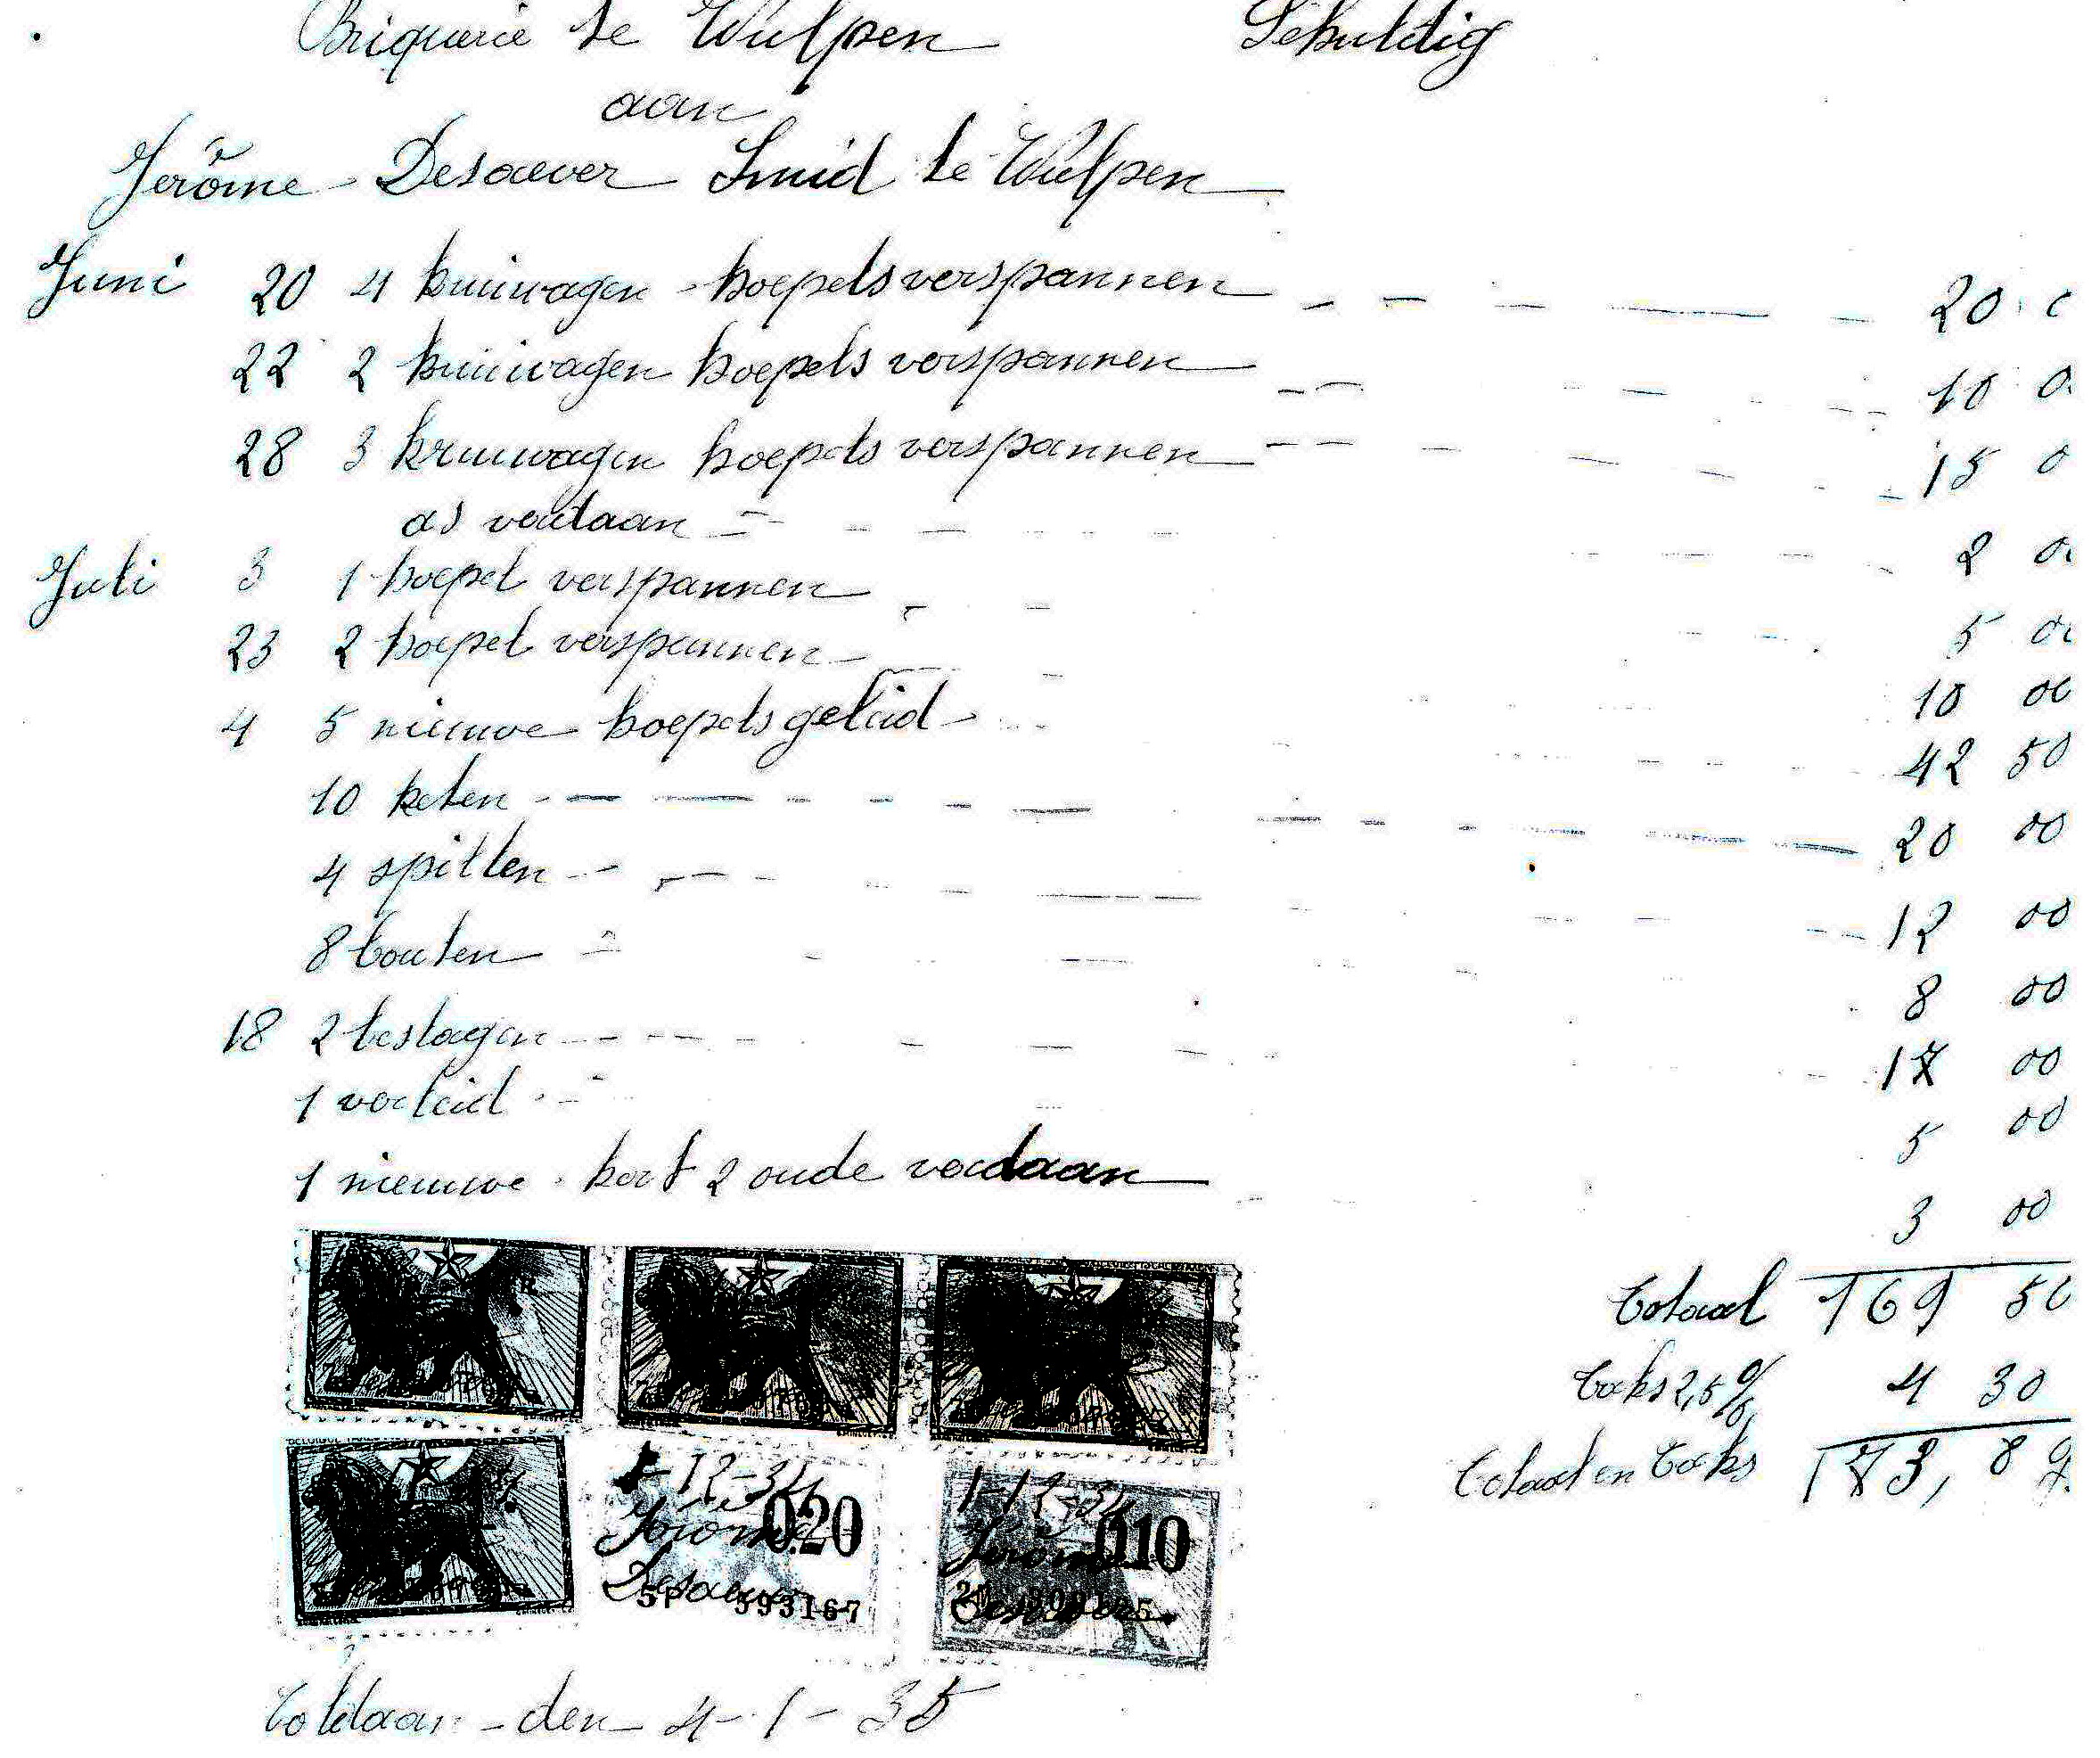 Briquerie te Wulpen Schuldig
aan
Jerôme Desaever Smid te Wulpen
Juni 20 4 kruiwagen hoepels verspannen 20 0
22 2 kruiwagen hoepels verspannen 10 0
28 3 kruiwagen hoepels verspannen 15 0
as verdaan 2 0
Juli 3 1 hoepel verspannen 5 00
23 2 hoepel verspannen 10 00
4 5 nieuwe hoepels geleid 42 50
10 keten 20 00
4 spitten 12 00
8 bouten 8 00
18 2 beslagen 17 00
1 verleid 5 00
1 nieuwe kort 2 oude verdaan 3 00
Totaal 169 50
Taks 2,5 % 4 30
Totaal en Taks 173, 8
1-12-34 1-12-34
Jerôme 0.20 Jerôme 0.10
Desaever 393167 Desaever
Voldaan den 4-1-35